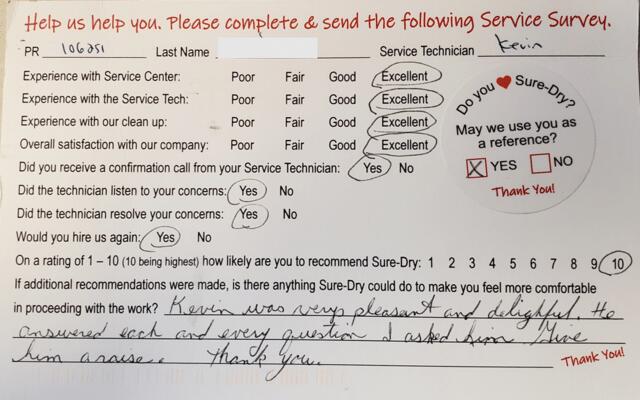 Help us help you. Please complete & send the following Service Survey.
PR 106251 Last Name Service Technician Kevin
Experience with Service Center: Poor Fair Good Excellent
Experience with the Service Tech: Poor Fair Good Excellent
Experience with our clean up: Poor Fair Good Excellent
Overall satisfaction with our company: Poor Fair Good Excellent
Do you ♥ Sure-Dry?
May we use you as
a reference?
X YES NO
Thank You!
Did you receive a confirmation call from your Service Technician: Yes No
Did the technician listen to your concerns: Yes No
Did the technician resolve your concerns: Yes No
Would you hire us again: Yes No
On a rating of 1 – 10 (10 being highest) how likely are you to recommend Sure-Dry: 1 2 3 4 5 6 7 8 9 10
If additional recommendations were made, is there anything Sure-Dry could do to make you feel more comfortable
in proceeding with the work? Kevin was very pleasant and delightful. He
answered each and every question I asked him Give
him a raise. Thank you.
Thank You!